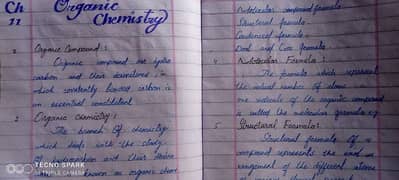 Ch
11
Organic
Chemistry
1 Organic Compound :
Organic compound are hydro
carbon and their derivatives in
which covalently bonded carbon is
an essential constituent
2 Organic chemistry :
The branch of chemistry
which deals with the study
of hydrocarbon and their
known as organic chem
Molecular compound formula
Structural formula
Condensed formula
Dood and Cros formula
4 Molecular Formula :
The formula which represent
the actual number of atoms
one molecule of the organic compound
is called the molecular formula e.g
5 Structural Formula :
Structural formula of a
compound represents the exact
arrangement of the different atoms
TECNO SPARK